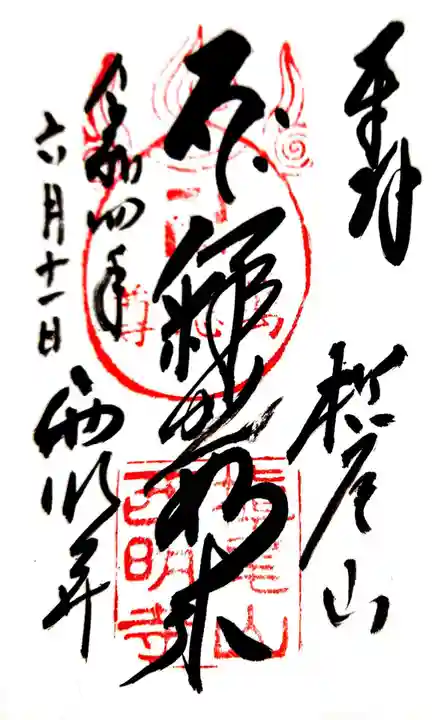 奉拝
槙尾山
釈迦如来
令和四年
六月十一日
西明寺
槙尾山
西明寺